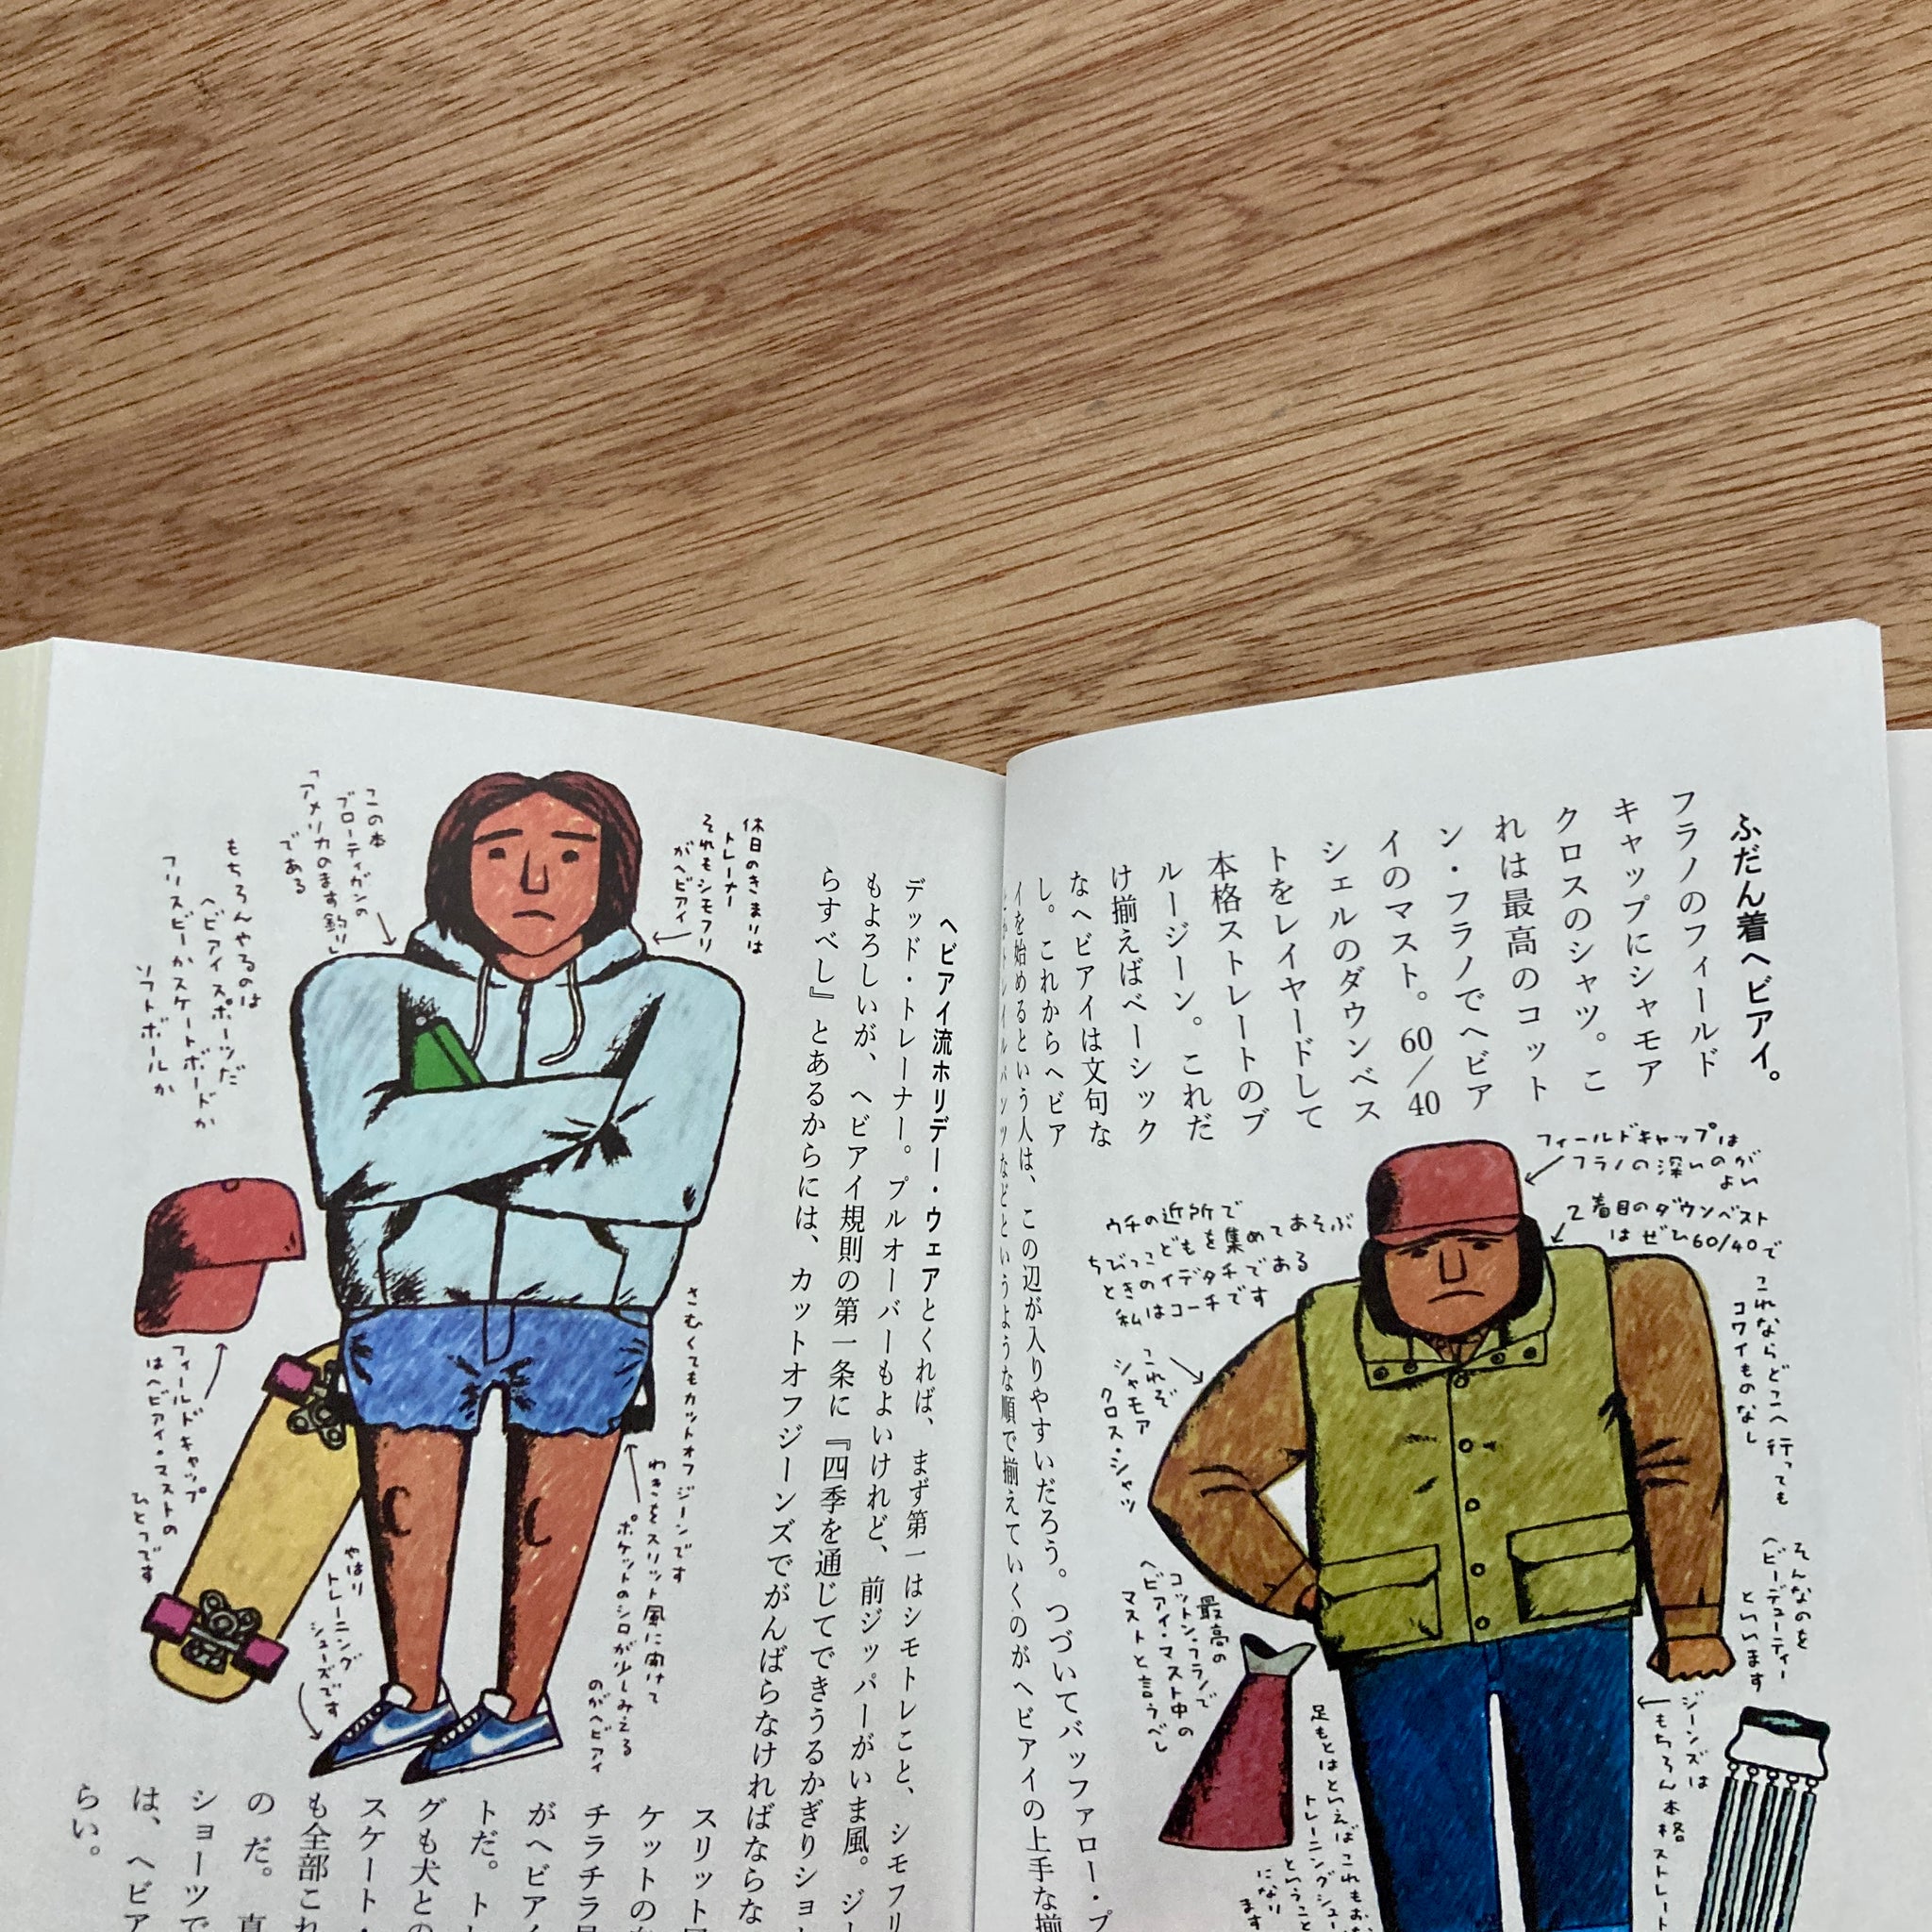 ふだん着ヘビアイ。
フラノのフィールド
キャップにシャモア
クロスのシャツ。こ
れは最高のコット
ン・フラノでヘビア
イのマスト。60/40
シェルのダウンベス
トをレイヤードして
本格ストレートのブ
ルージーン。これだ
け揃えばベーシック
なヘビアイは文句な
し。これからヘビア
イを始めるという人は、この辺が入りやすいだろう。つづいてバッファロー・プ
などというような順で揃えていくのがヘビアイの上手な揃
フィールドキャップは
フラノの深いのが
よい
2着目のダウンベスト
はぜひ60/40で
これならどこへ行っても
コワイものなし
そんなのを
ヘビーデューティー
といいます
ウチの近所で
ちびっこどもを集めてあそぶ
ときのイデタチである
私はコーチです
これぞ
シャモア
クロス・シャツ
最高の
コットン・フラノで
ヘビアイ・マスト中の
マストと言うべし
ジーンズは
もちろん本格ストレート
足もとはといえばこれもお
トレーニングシュー
ということ
になり
ます
ヘビアイ流ホリデー・ウェアとくれば、まず第一はシモトレこと、シモフリ
デッド・トレーナー。プルオーバーもよいけれど、前ジッパーがいま風。ジー
もよろしいが、ヘビアイ規則の第一条に『四季を通じてできうるかぎりショー
らすべし』とあるからには、カットオフジーンズでがんばらなければならな
スリット
ケットの
チラチラ
がヘビアイ
トだ。ト
グも犬との
スケート・
も全部これ
のだ。真
ショーツで
は、ヘビア
らい。
休日のきまりは
トレーナー
それもシモフリ
がヘビアイ
この本
ブローティガンの
「アメリカのます釣り」
である
もちろんやるのは
ヘビアイスポーツだ
フリスビーかスケートボードか
ソフトボールか
フィールドキャップ
はヘビアイ・マストの
ひとつです
さむくてもカットオフジーンです
わきをスリット風に開けて
ポケットのシロが少しみえる
のがヘビアイ
やはり
トレーニング
シューズです